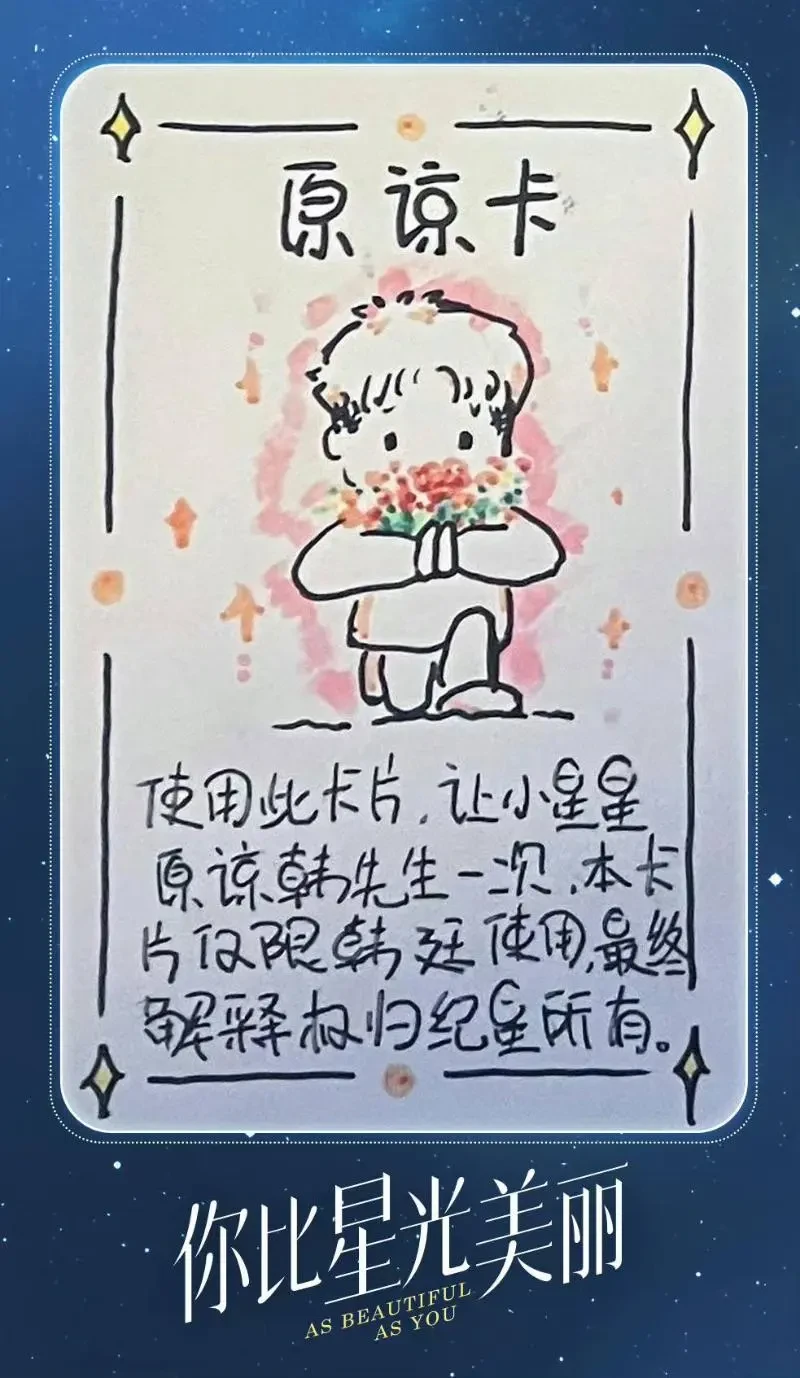 原谅卡
使用此卡片,让小星星
原谅韩先生一次,本卡
片仅限韩廷使用,最终
解释权归纪星所有。
你比星光美丽
AS BEAUTIFUL
AS YOU